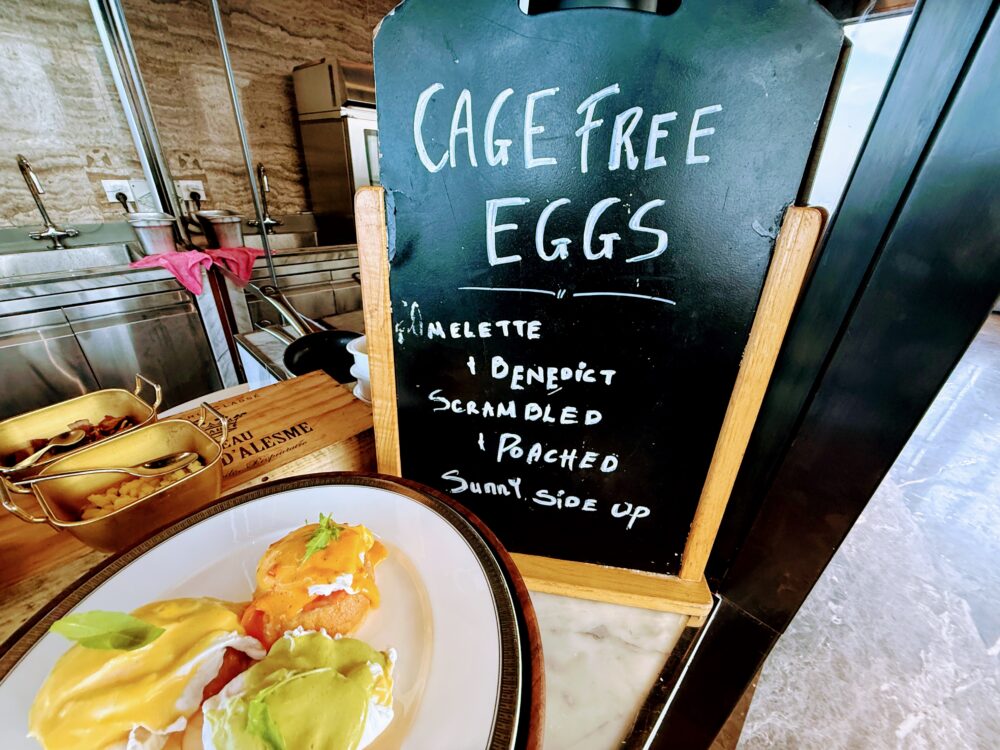 CAGE FREE
EGGS
OMELETTE
& BENEDICT
SCRAMBLED
& POACHED
SUNNY SIDE UP
D'ALESME